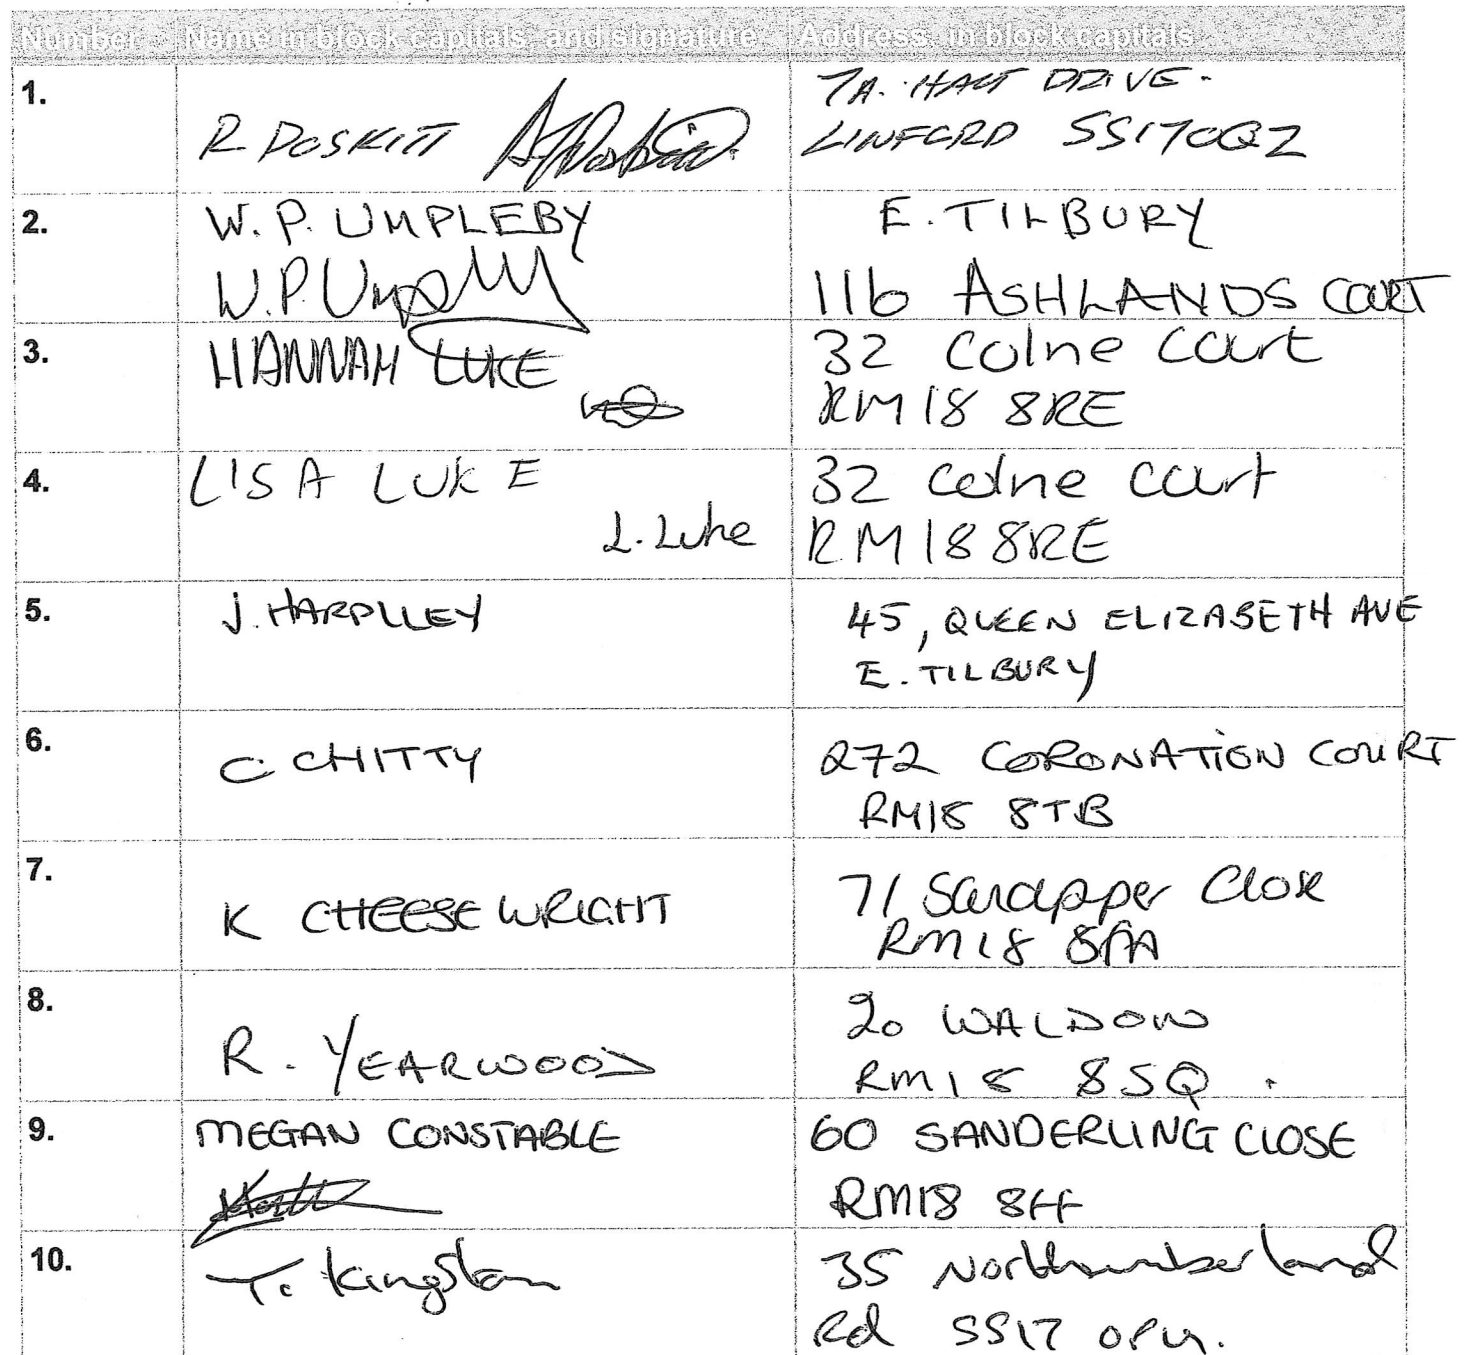 Number Name in block capitals, and signature Address, in block capitals
1. 7A. HALT DRIVE.
R POSKITT LINFORD SS17 0QZ
2. W. P. UMPLEBY E. TILBURY
W.P. 116 ASHLANDS COURT
3. HANNAH LUKE 32 Colne Court
RM18 8RE
4. LISA LUKE 32 Colne Court
L. Luke RM18 8RE
5. J. HARPLLEY 45, QUEEN ELIZABETH AVE
E. TILBURY
6. C CHITTY 272 CORONATION COURT
RM18 8TB
7. K CHEESEWRIGHT 71 Sandpiper Close
RM18
8. R. YEARWOOD 20 WALDON
RM18 8SQ.
9. MEGAN CONSTABLE 60 SANDERLING CLOSE
RM18 8FF
10. T. Kingston 35 Northumberland
Rd SS17